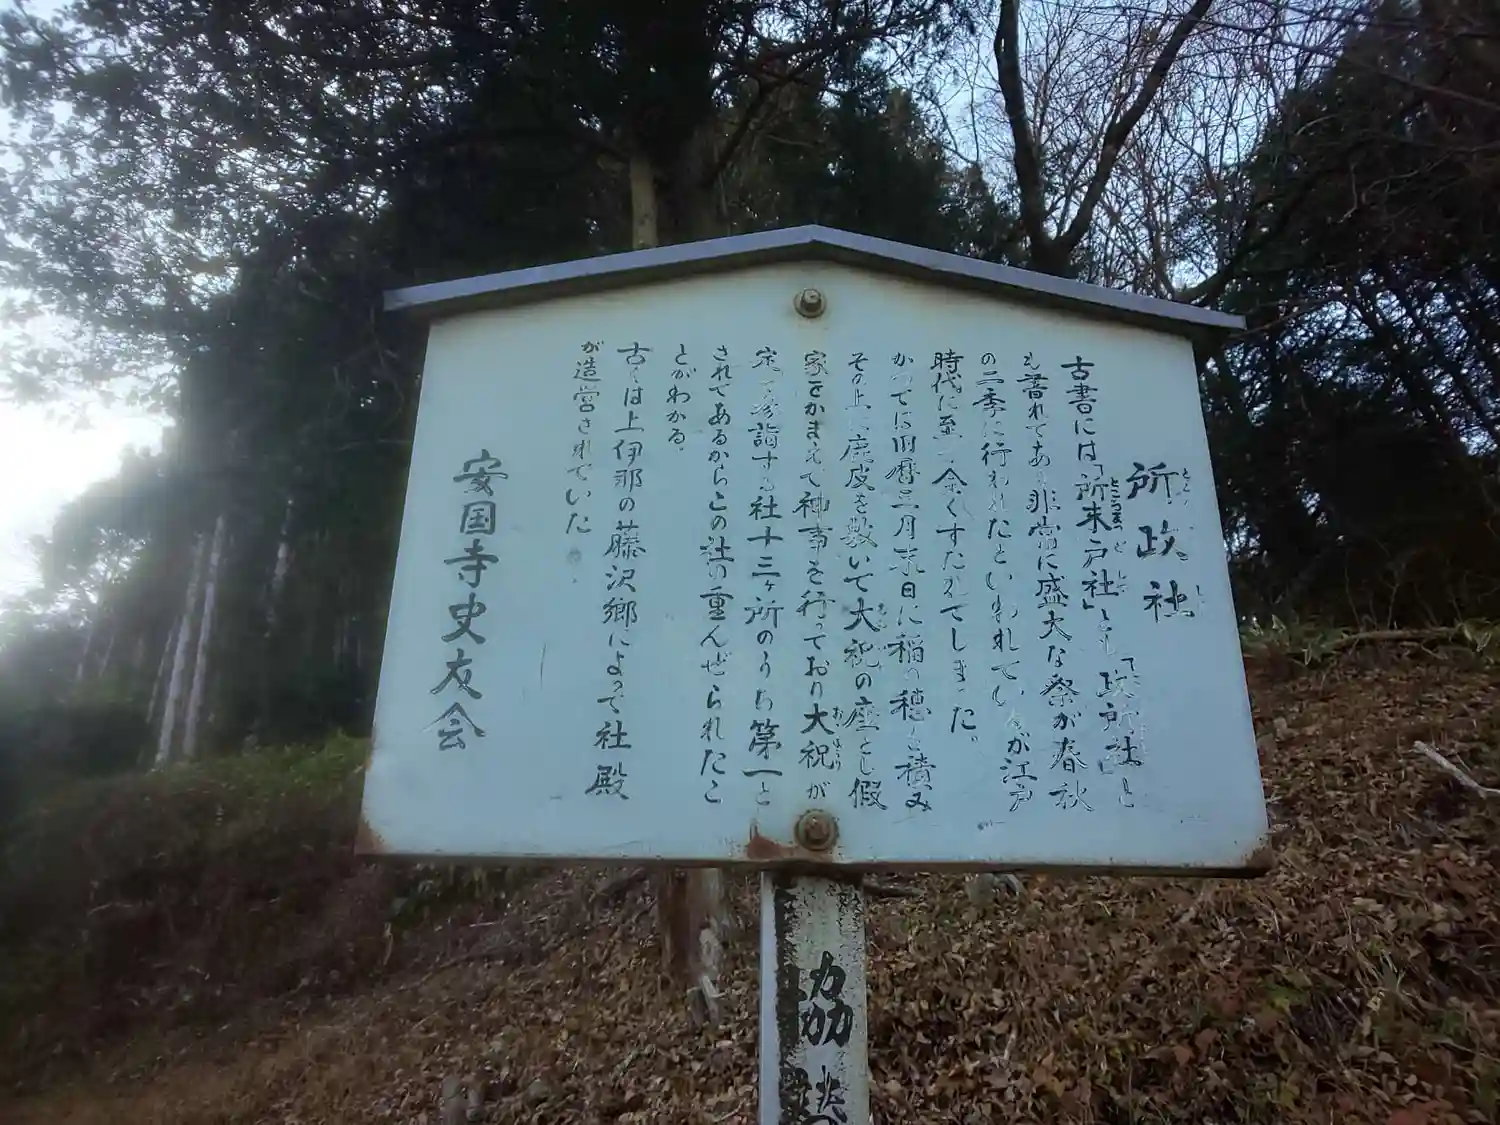 所政社
古書には「所末戸社」とも「政所社」と
も書れてあり非常に盛大な祭が春秋
の二季に行われたといわれているが江戸
時代に至って全くすたれてしまった。
かつては旧暦三月末日に稲の穂を積み
その上に鹿皮を敷いて大祝の座とし假
家をかまえて神事を行っており大祝が
必ず参詣する社十三ヶ所のうち第一と
されてあるからこの社の重んぜられたこ
とがわかる。
古くは上伊那の藤沢郷によって社殿
が造営されていた。
安国寺史友会
協